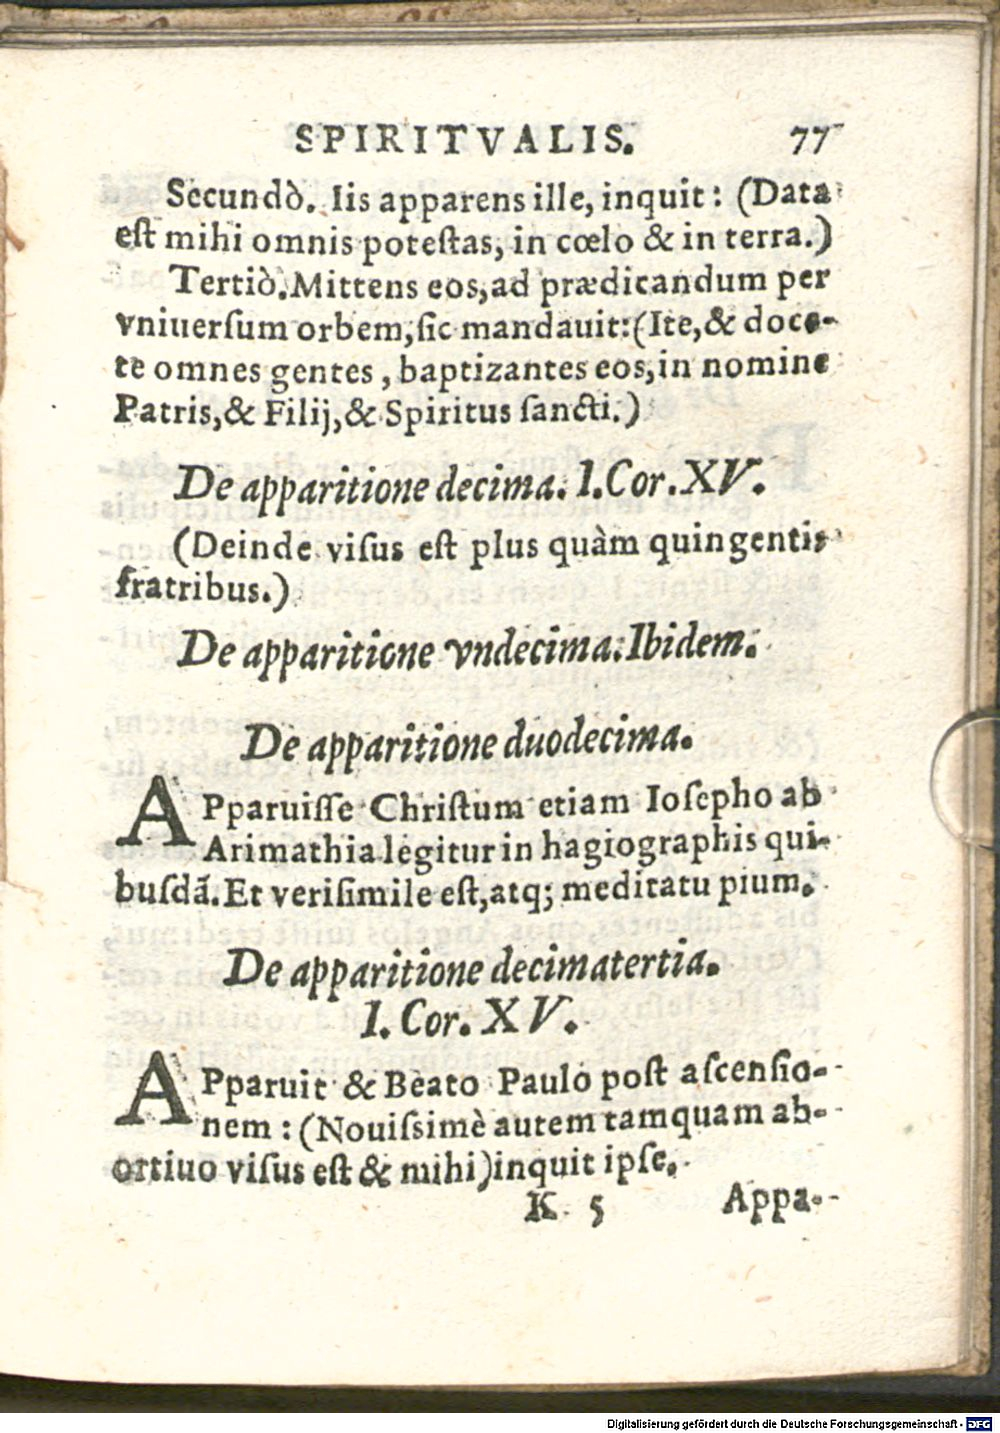 SPIRITVALIS. 77
Secundò. Iis apparens ille, inquit: (Data
est mihi omnis potestas, in cœlo & in terra.)
Tertiò. Mittens eos, ad prædicandum per
vniuersum orbem, sic mandauit: (Ite, & doce-
te omnes gentes, baptizantes eos, in nomine
Patris, & Filij, & Spiritus sancti.)
De apparitione decima. 1. Cor. XV.
(Deinde visus est plus quàm quingentis
fratribus.)
De apparitione vndecima. Ibidem.
De apparitione duodecima.
APparuisse Christum etiam Iosepho ab
Arimathia legitur in hagiographis qui-
busdã. Et verisimile est, atq; meditatu pium.
De apparitione decimatertia.
1. Cor. XV.
APparuit & Beato Paulo post ascensio-
nem: (Nouissimè autem tamquam ab-
ortiuo visus est & mihi) inquit ipse.
K 5 Appa-
Digitalisierung gefördert durch die Deutsche Forschungsgemeinschaft - DFG